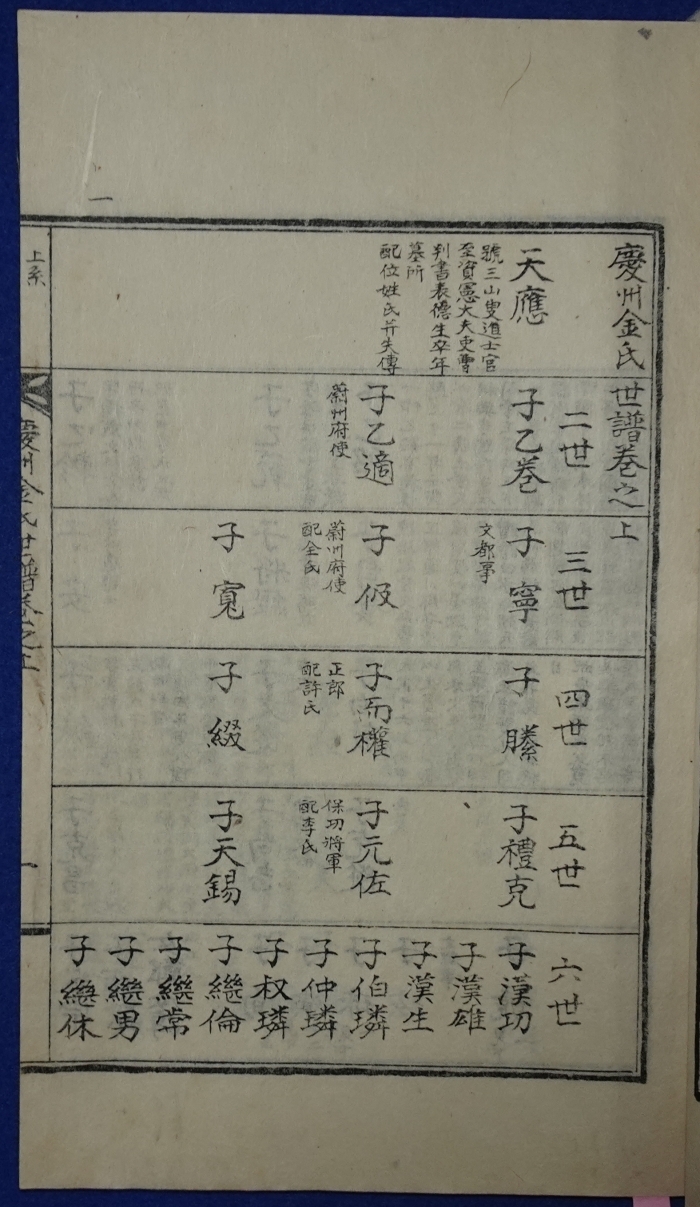 慶州金氏世譜卷之上
天應
號三山叟進士官
至資憲大夫吏曹
判書表德生卒年
墓所
配位姓氏幷失傳
二世
子乙卷
子乙適
蔚州府使
三世
子寧
文都事
子伋
蔚州府使
配全氏
子寬
四世
子縢
子而權
正郎
配許氏
子綴
五世
子禮克
子元佐
保功將軍
配李氏
子天錫
六世
子漢功
子漢雄
子漢生
子伯璘
子仲璘
子叔璘
子繼倫
子繼常
子繼男
子繼休
上系
慶州金氏世譜卷之上
一
一